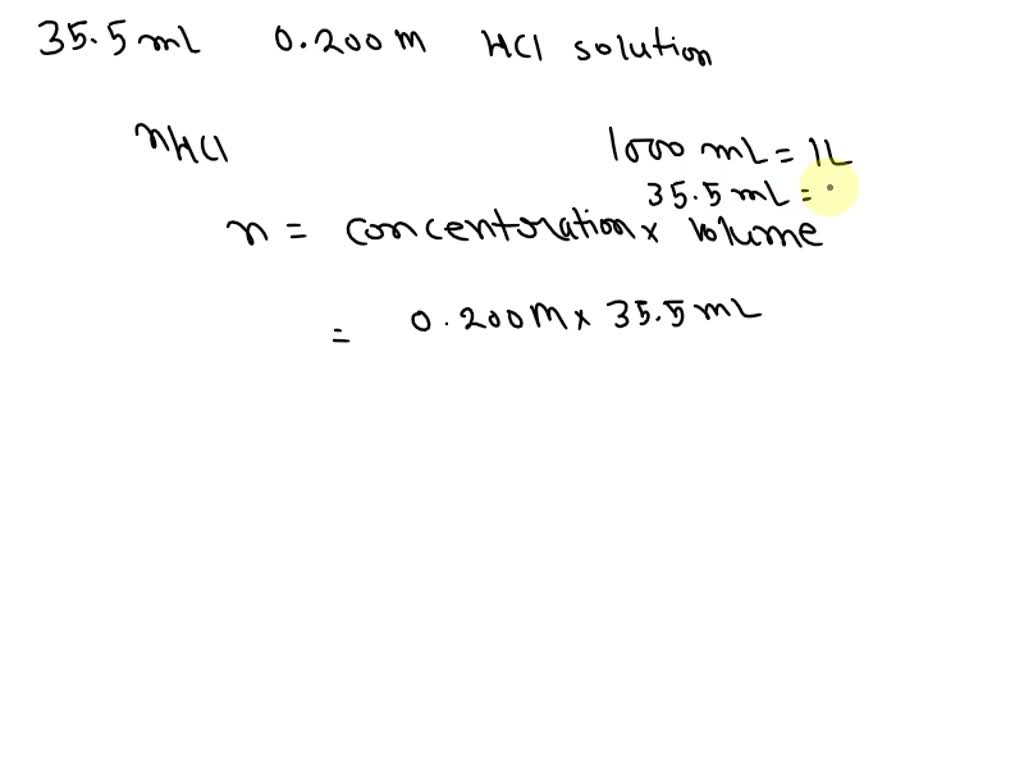 35.5 ml 0.200 m HCl solution
nHCl
1000 mL = 1L
35.5 mL =
n = concentoration x volume
= 0.200M x 35.5 mL